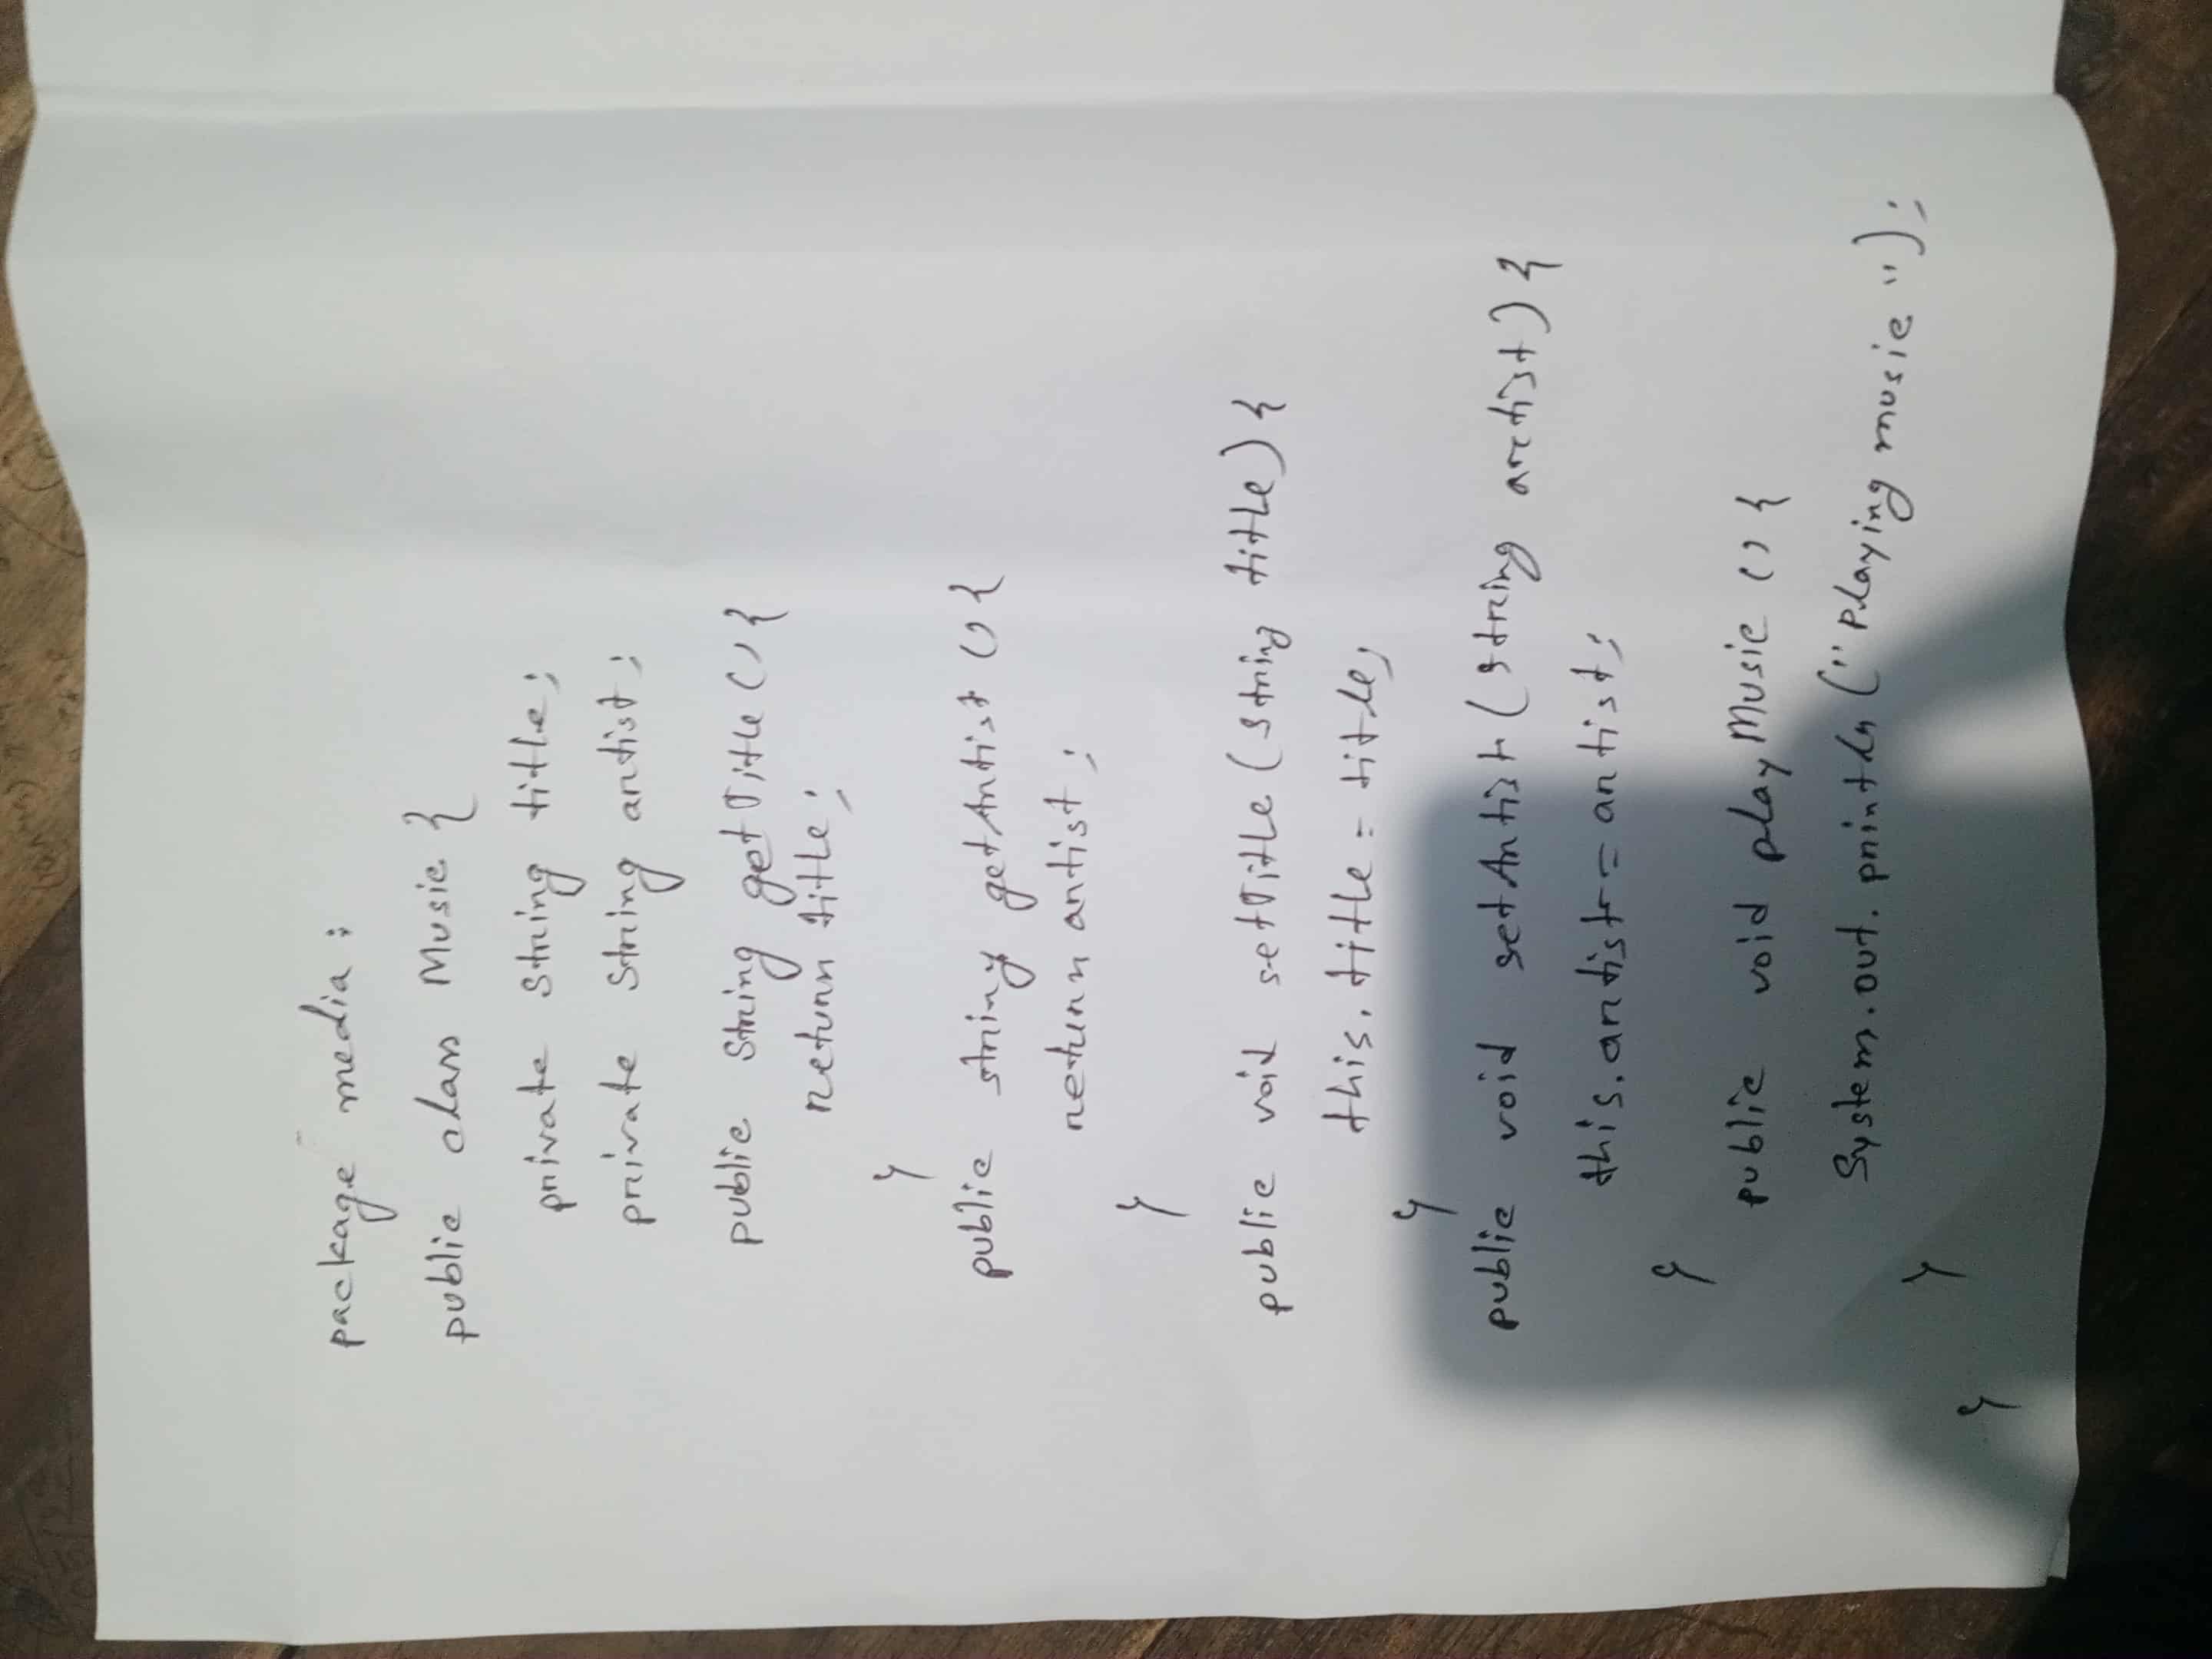 package media;
public class Music {
private String title;
private String artist;
public String getTitle() {
return title;
}
public string getArtist () {
return artist;
}
public void setTitle (string title) {
this. title = title;
}
public void setArtist (string artist) {
this.artist = artist;
}
public void playMusic () {
System.out.println ("playing music");
}
}